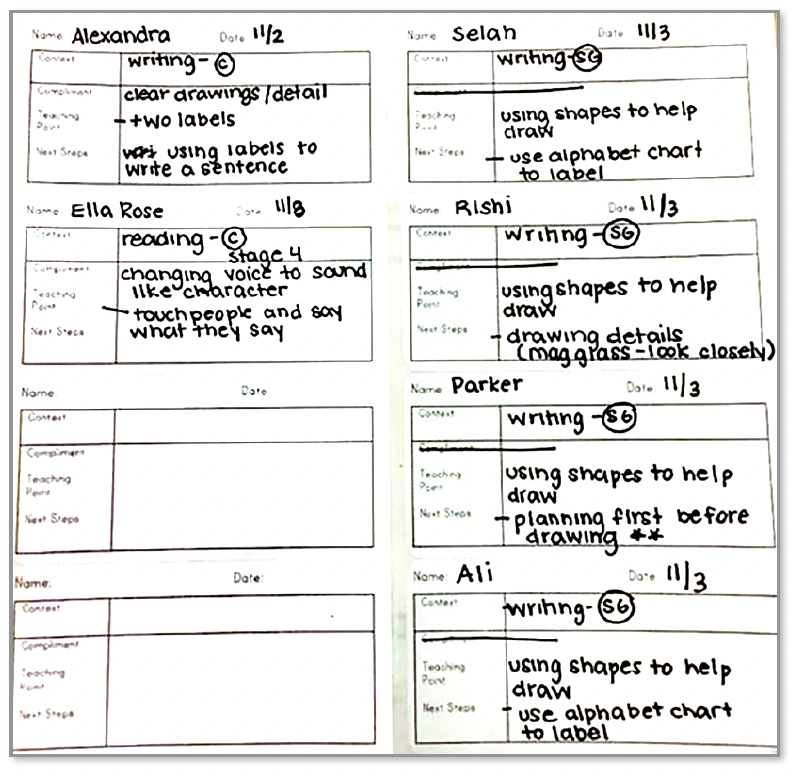 Name: Alexandra Date 11/2
Context writing - C
Compliment clear drawings/detail
Teaching Point - two labels
Next Steps using labels to
write a sentence
Name: Ella Rose Date 11/8
Context reading - C
stage 4
Compliment changing voice to sound
like character
Teaching Point - touch people and say
Next Steps what they say
Name: Date
Context
Compliment
Teaching
Point
Next Steps
Name: Date:
Context
Compliment
Teaching
Point
Next Steps
Name: Selah Date: 11/3
Context writing - SG
Compliment
Teaching Point using shapes to help
draw
Next Steps - use alphabet chart
to label
Name: Rishi Date 11/3
Context writing - SG
Compliment
Teaching Point using shapes to help
draw
Next Steps - drawing details
(mag glass - look closely)
Name: Parker Date: 11/3
Context writing - SG
Compliment
Teaching Point using shapes to help
draw
Next Steps - planning first before
drawing **
Name: Ali Date 11/3
Context writing - SG
Compliment
Teaching Point using shapes to help
draw
Next Steps - use alphabet chart
to label